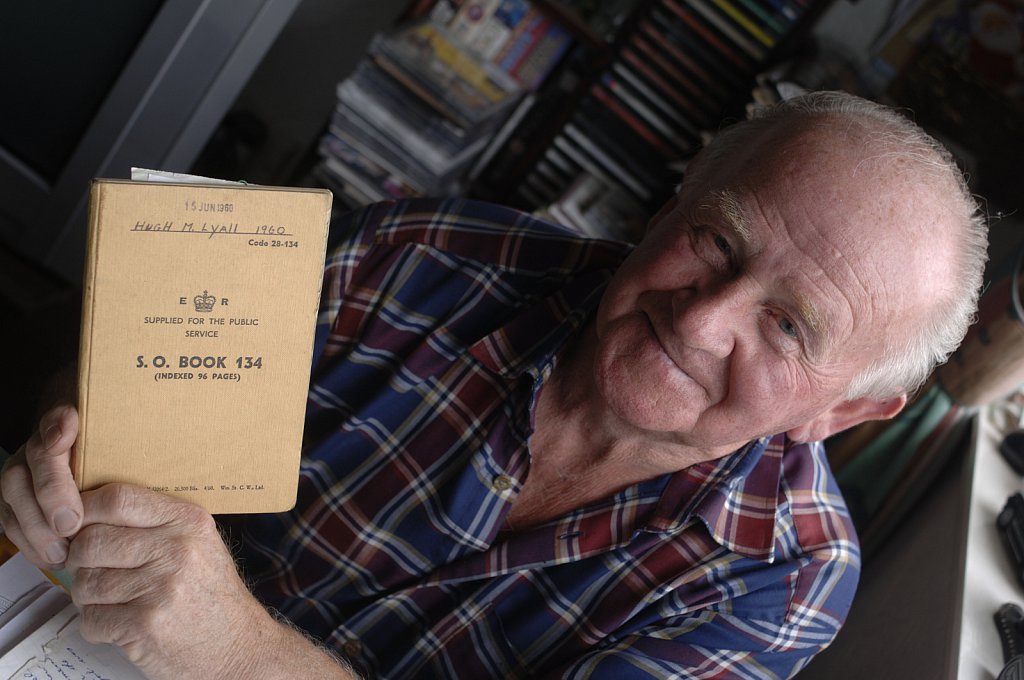 15 JUN 1960
HUGH M. LYALL 1960
Code 28-134
E R
SUPPLIED FOR THE PUBLIC
SERVICE
S. O. BOOK 134
(INDEXED 96 PAGES)
26,500 Bks. 4/60. Wm. St. C. W., Ltd.